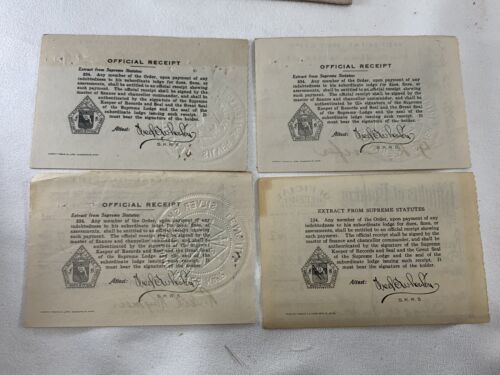 OFFICIAL RECEIPT
Extract from Supreme Statutes:
234. Any member of the Order, upon payment of any
indebtedness to his subordinate lodge for dues, fines, or
assessments, shall be entitled to an official receipt showing
such payment. The official receipt shall be signed by the
master of finance and chancellor commander, and shall be
authenticated by the signature of the Supreme
Keeper of Records and Seal and the Great Seal
of the Supreme Lodge and the seal of the
subordinate lodge issuing such receipt. It
must bear the signature of the holder.
Attest:
S.K.R.S.
OFFICIAL RECEIPT
Extract from Supreme Statutes:
234. Any member of the Order, upon payment of any
indebtedness to his subordinate lodge for dues, fines, or
assessments, shall be entitled to an official receipt showing
such payment. The official receipt shall be signed by the
master of finance and chancellor commander, and shall be
authenticated by the signature of the Supreme
Keeper of Records and Seal and the Great Seal
of the Supreme Lodge and the seal of the
subordinate lodge issuing such receipt. It
must bear the signature of the holder.
Attest:
S.K.R.S.
OFFICIAL RECEIPT
Extract from Supreme Statutes:
234. Any member of the Order, upon payment of any
indebtedness to his subordinate lodge for dues, fines, or
assessments, shall be entitled to an official receipt showing
such payment. The official receipt shall be signed by the
master of finance and chancellor commander, and shall be
authenticated by the signature of the Supreme
Keeper of Records and Seal and the Great Seal
of the Supreme Lodge and the seal of the
subordinate lodge issuing such receipt. It
must bear the signature of the holder.
Attest:
S.K.R.S.
SILVER
EXTRACT FROM SUPREME STATUTES
234. Any member of the Order, upon payment of any
indebtedness to his subordinate lodge for dues, fines, or
assessments, shall be entitled to an official receipt showing
such payment. The official receipt shall be signed by the
master of finance and chancellor commander, and shall be
authenticated by the signature of the Supreme
Keeper of Records and Seal and the Great Seal
of the Supreme Lodge and the seal of the
subordinate lodge issuing such receipt. It
must bear the signature of the holder.
Attest:
S.K.R.S.